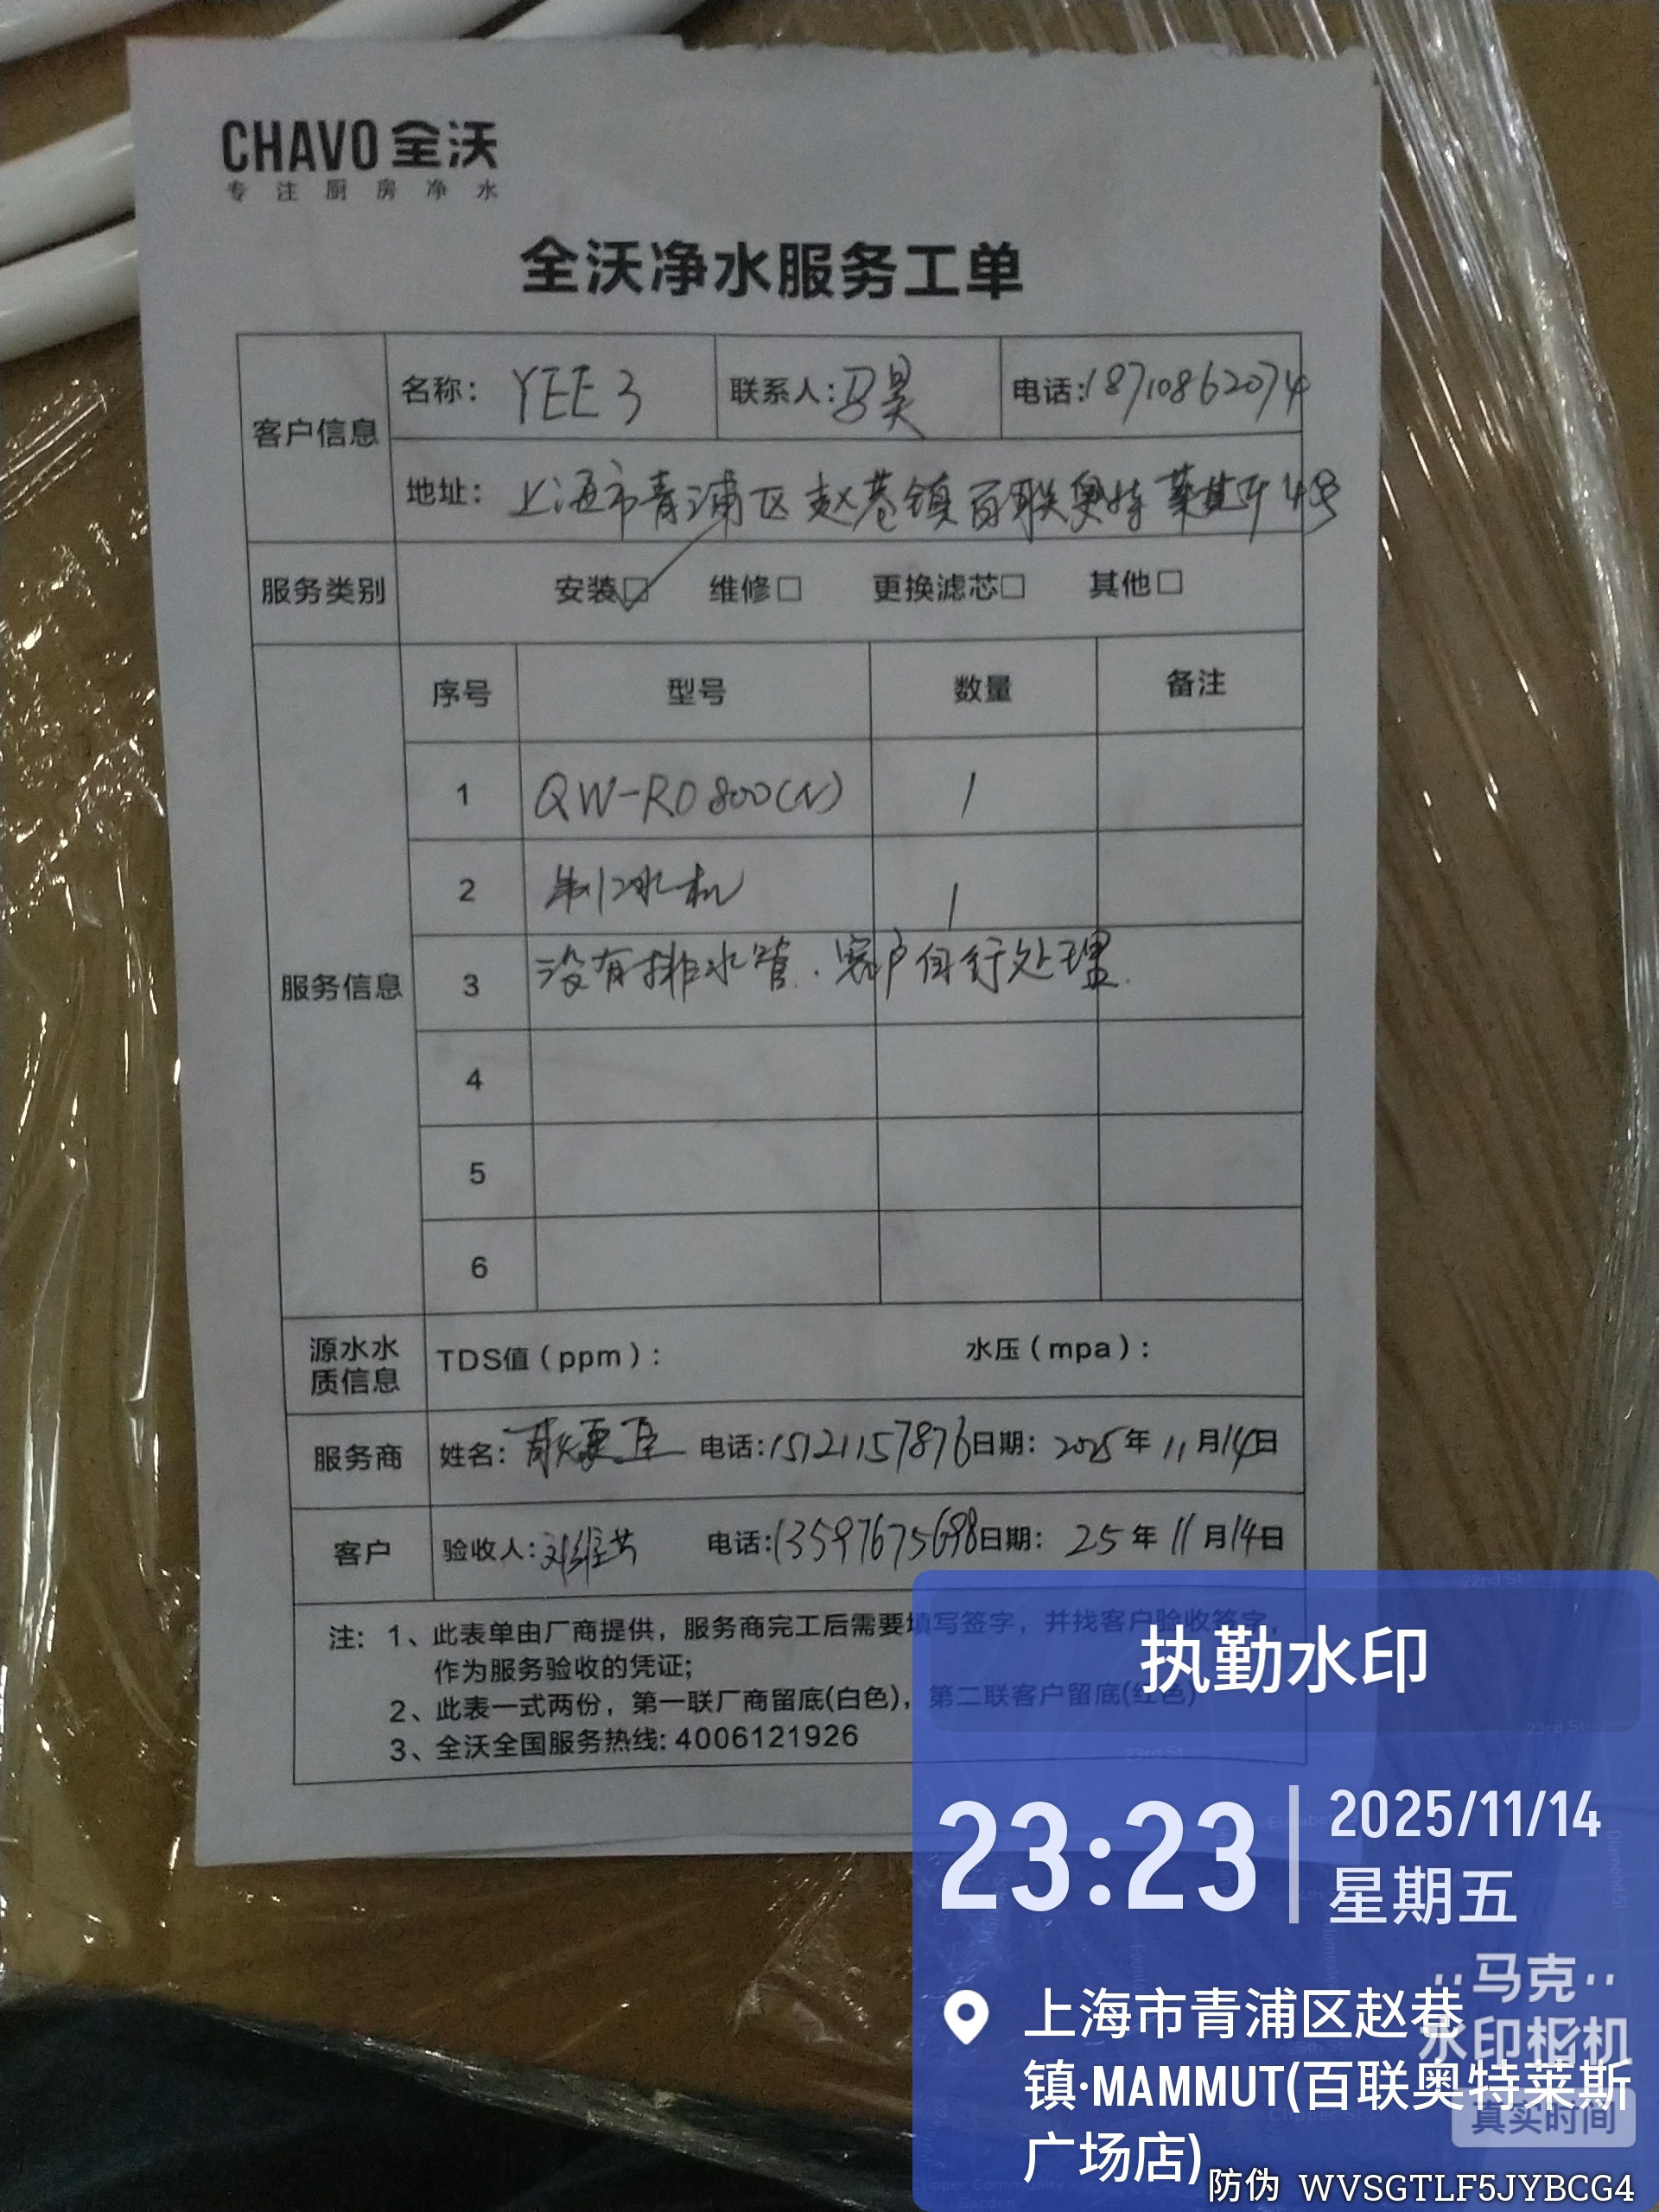 CHAVO 全沃
专注厨房净水
全沃净水服务工单
客户信息
名称： YEE 3 联系人： 马昊 电话：18710862074
地址： 上海市青浦区赵巷镇百联奥特莱斯 4号
服务类别 安装☑ 维修□ 更换滤芯□ 其他□
服务信息
序号 型号 数量 备注
1 QW-RO800(N) 1
2 制冰机 1
3 没有排水管.客户自行处理.
4
5
6
源水水质信息 TDS值（ppm）： 水压（mpa）：
服务商 姓名： 电话：15121157876 日期：2025年11月14日
客户 验收人： 电话：13597675698 日期：25年11月14日
注：1、此表单由厂商提供，服务商完工后需要填写签字，并找客户验收签字，
作为服务验收的凭证；
2、此表一式两份，第一联厂商留底(白色)，第二联客户留底(红色)
3、全沃全国服务热线: 4006121926
执勤水印
23:23
2025/11/14
星期五
上海市青浦区赵巷
镇·MAMMUT(百联奥特莱斯
广场店)
马克
水印相机
真实时间
防伪 WVSGTLF5JYBCG4